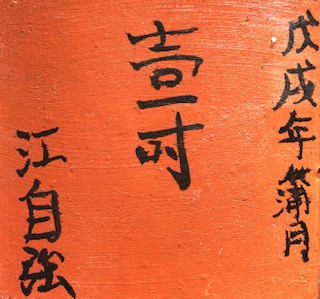 戊戌年蒲月
壹吋
江自強